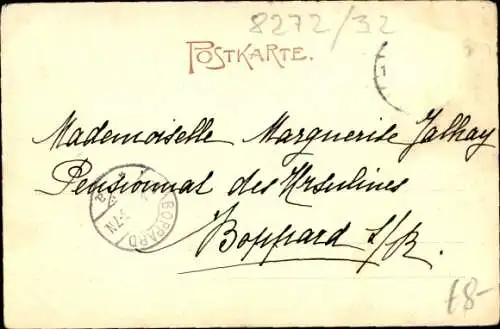 8272/32
POSTKARTE.
Mademoiselle Marguerite Jalhay
Pensionnat des Ursulines
Boppard s/R.
BOPPARD
5-7N
€8-